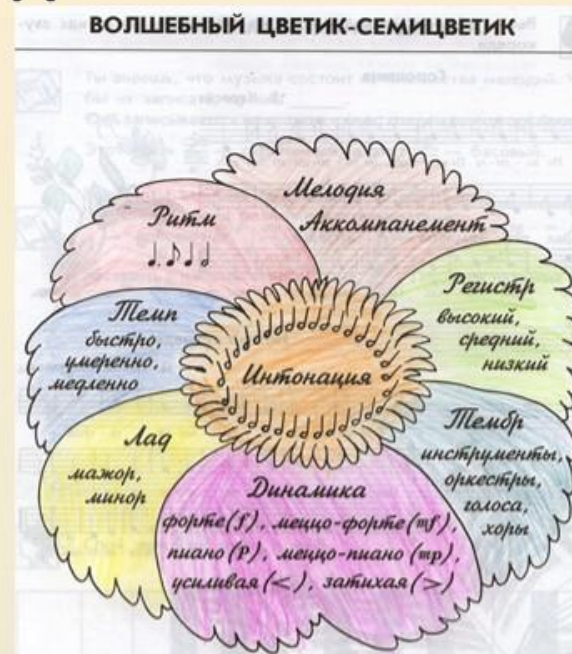 ВОЛШЕБНЫЙ ЦВЕТИК-СЕМИЦВЕТИК
Мелодия
Аккомпанемент
Ритм
Регистр
высокий,
средний,
низкий
Темп
быстро,
умеренно,
медленно
Интонация
Тембр
инструменты,
оркестры,
голоса,
хоры
Лад
мажор,
минор
Динамика
форте (f), меццо-форте (mf),
пиано (P), меццо-пиано (mp),
усиливая (<), затихая (>)